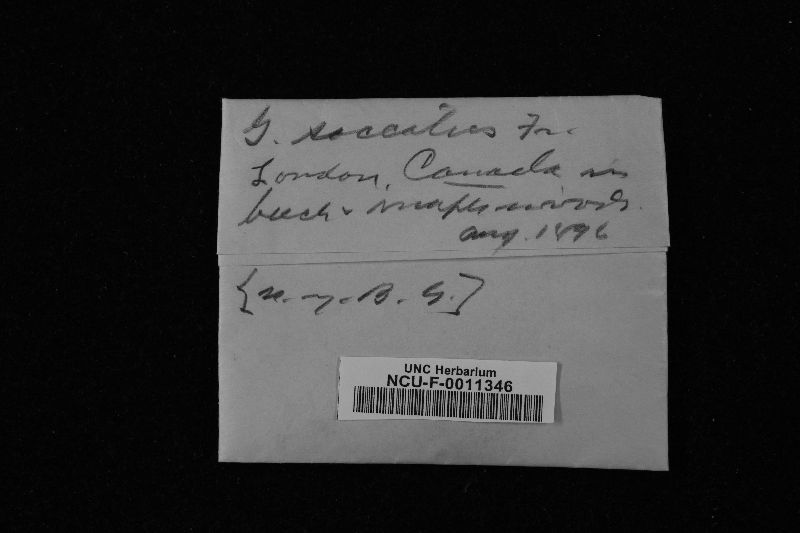 G. saccatus Fr.
London, Canada in
beech & maple woods.
Aug. 1896
[N.Y.B.G.]
UNC Herbarium
NCU-F-0011346